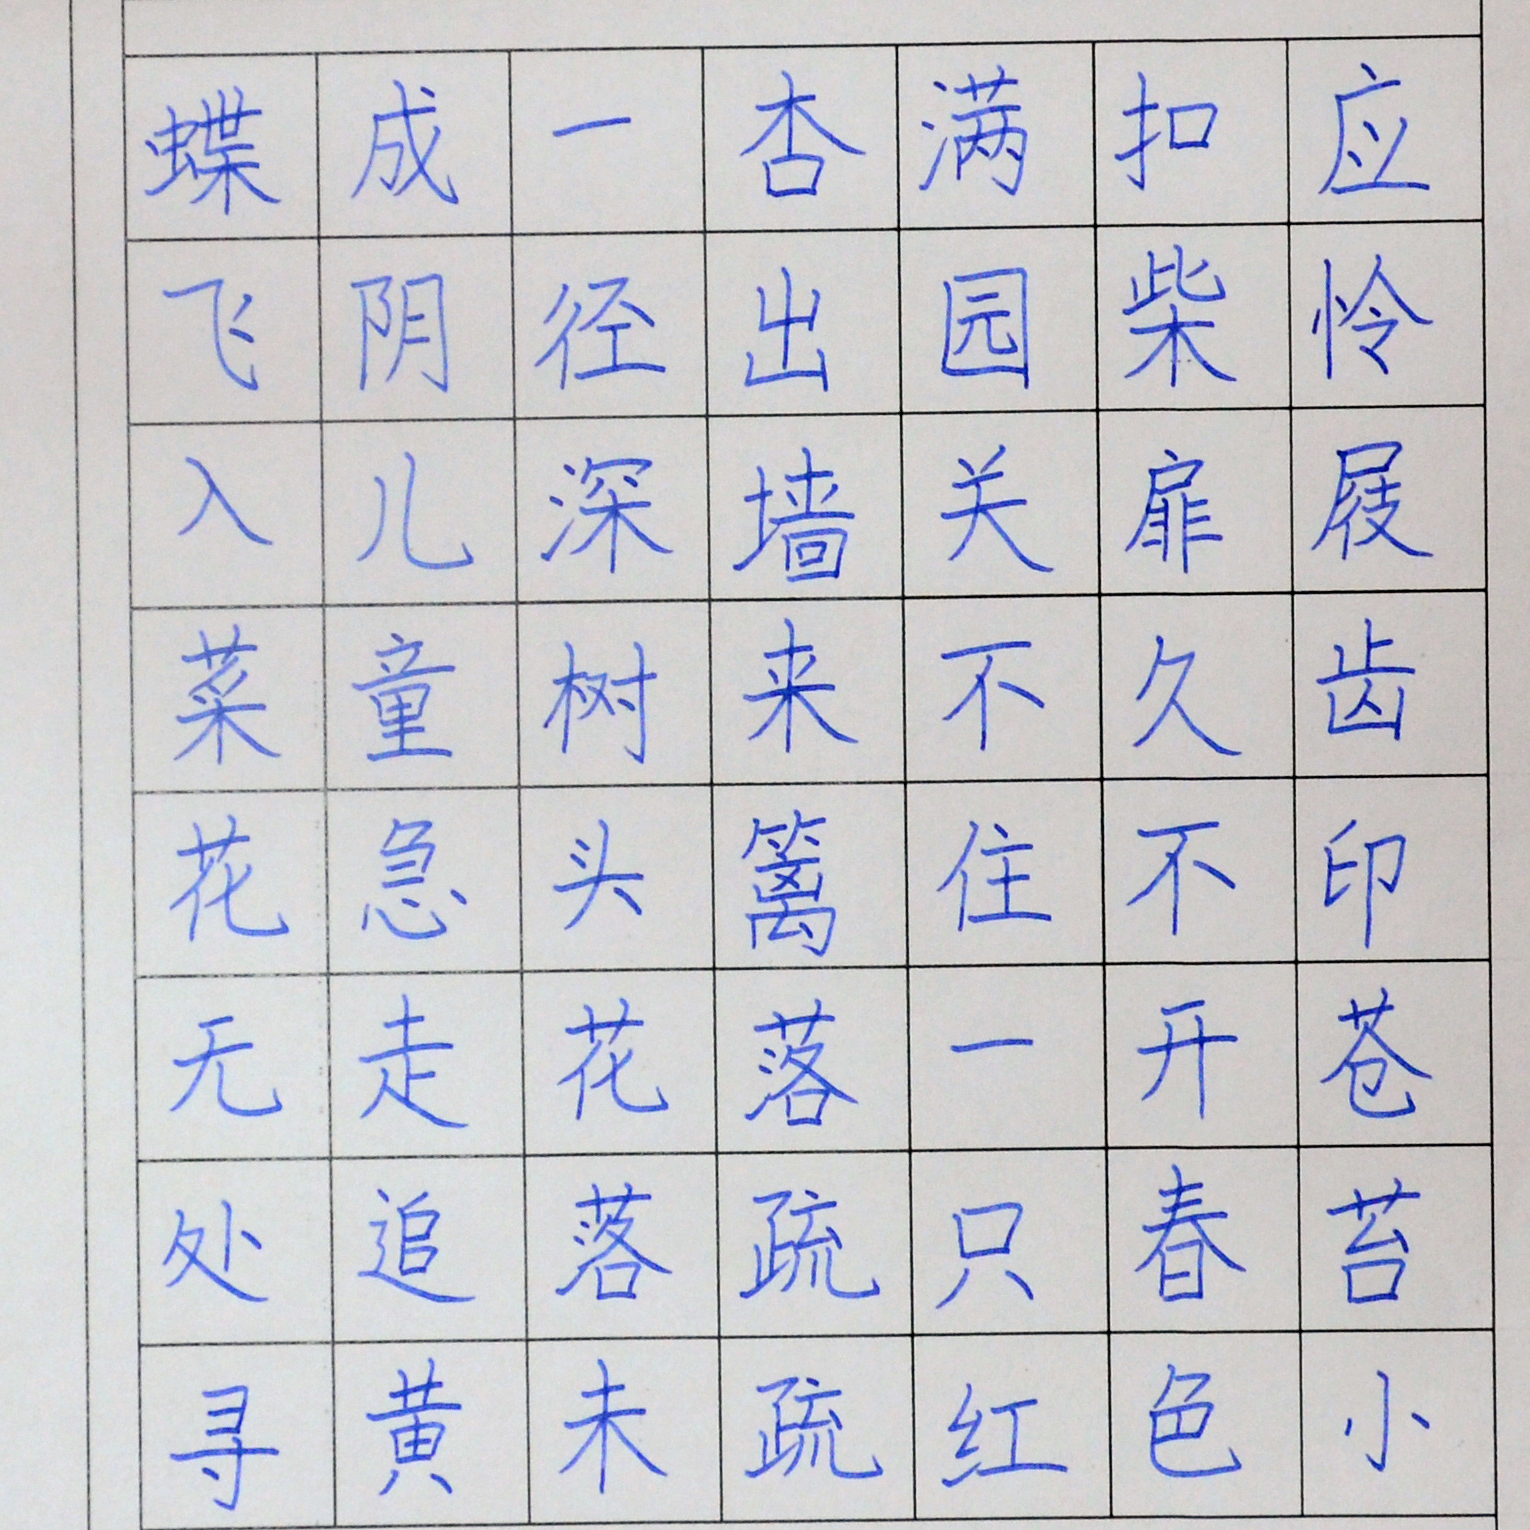 应怜屐齿印苍苔小
扣柴扉久不开春色
满园关不住一只红
杏出墙来篱落疏疏
一径深树头花落未
成阴儿童急走追黄
蝶飞入菜花无处寻